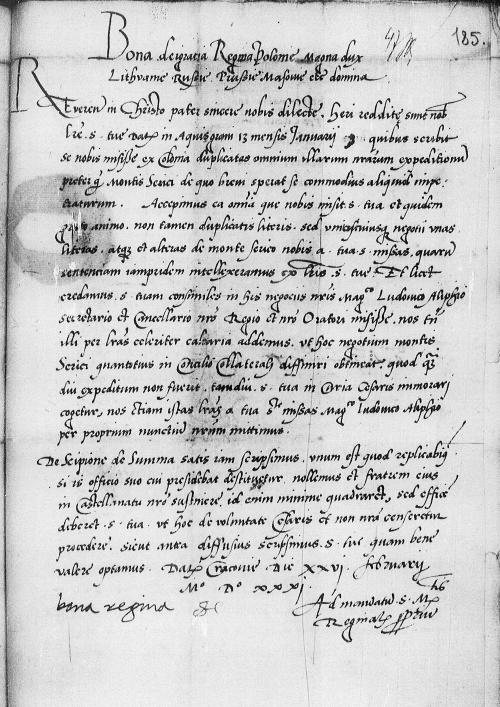 185.
Bona dei gracia Regina Polonie Magna dux
Lithuanie Russie Prussie Masovie etc domina
Reveren in Christo pater sincere nobis dilecte. Heri reddite sunt nob
lre. s. tue Dat in Aquisgrani 13 mensis Januarij quibus scribit
se nobis misisse ex Colonia duplicatas omnium illarum nrarum expeditionu
preter Montis Serici de quo brevi sperat se commodius aliquid impe
traturum. Accepimus ea omnia que nobis misit s. tua et quidem
grato animo. non tamen duplicatis literis. sed uniuscuiusq negotij unas
literas. atq et alteras de monte serico nobis a tua s. missas, quaru
sententiam iampridem intellexeramus ex lris s. tue. Et licet
credamus s. tuam consimiles in his negociis nris Mag Ludovico Aliphio
secretario et Cancellario nro Regio et nro Oratori misisse, nos tn
illi per lras celeriter calcaria addemus, ut hoc negotium montis
Serici quantotius in Consilio Collaterali diffiniri obtineat, quod
diu expeditum non fuerit, tamdiu s. tua in Curia Cesaris immorari
cogetur, nos etiam istas lras a tua s missas Mag Ludovico Aliphio
per proprium nunctium nrum mittimus.
De Scipione de Summa satis iam scripsimus. unum est quod replicabim
si is officio suo cui presidebat destituetur, nollemus et fratrem eius
in Castellanatu nro sustinere, id enim minime quadraret, sed efficer
deberet s. tua, ut hoc de voluntate Cesaris et non nra censeretur
procedere, sicut antea diffusius scripsimus s. tue quam bene
valere optamus. Dat Cracovie Die XXVI. February
M D XXXI
bona regina
Ad mandatu s. M
Reginal